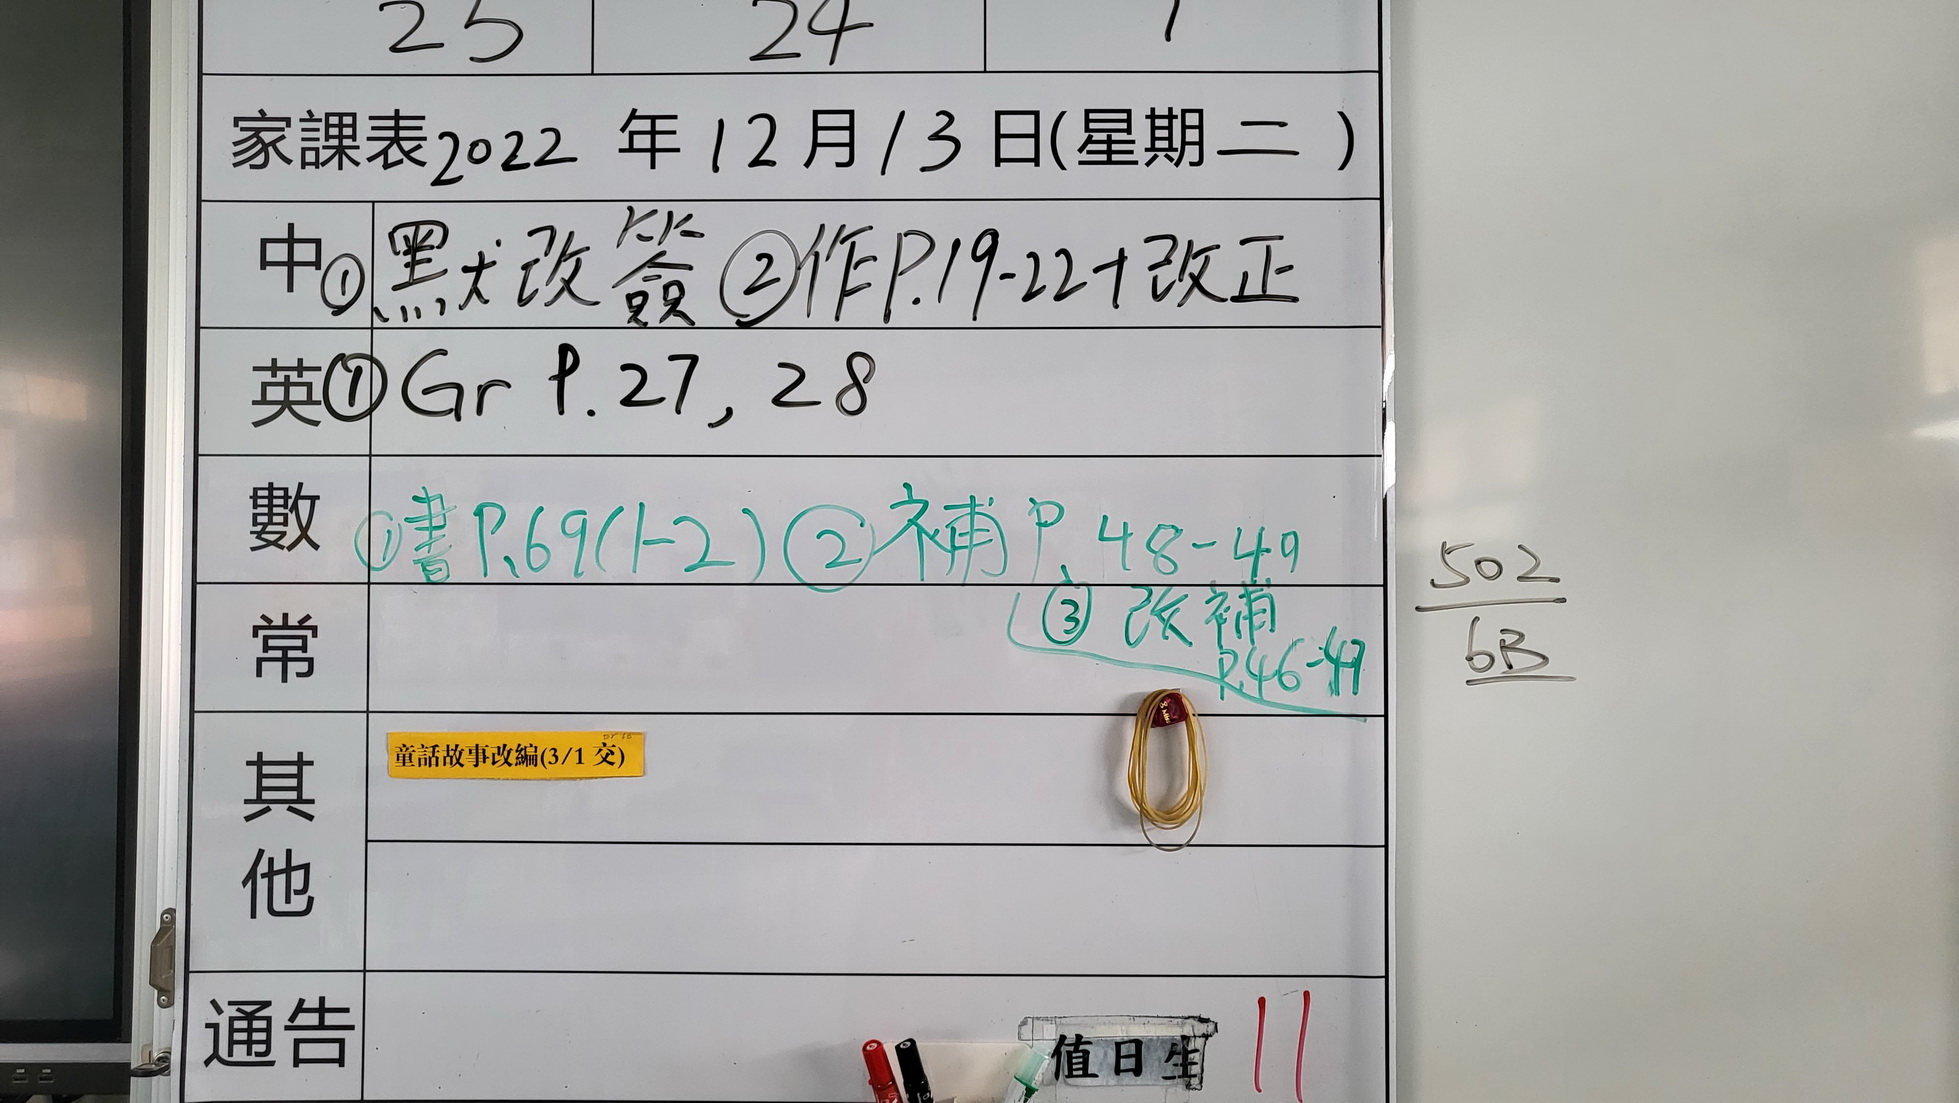 25 24 1
家課表2022年12月13日(星期二)
中①默改簽②作P.19-22+改正
英①Gr P.27, 28
數①書P.69(1-2)②補P.48-49
常 ③改補
P.46-47
502
6B
其他
童話故事改編(3/1 交)
通告
值日生 11